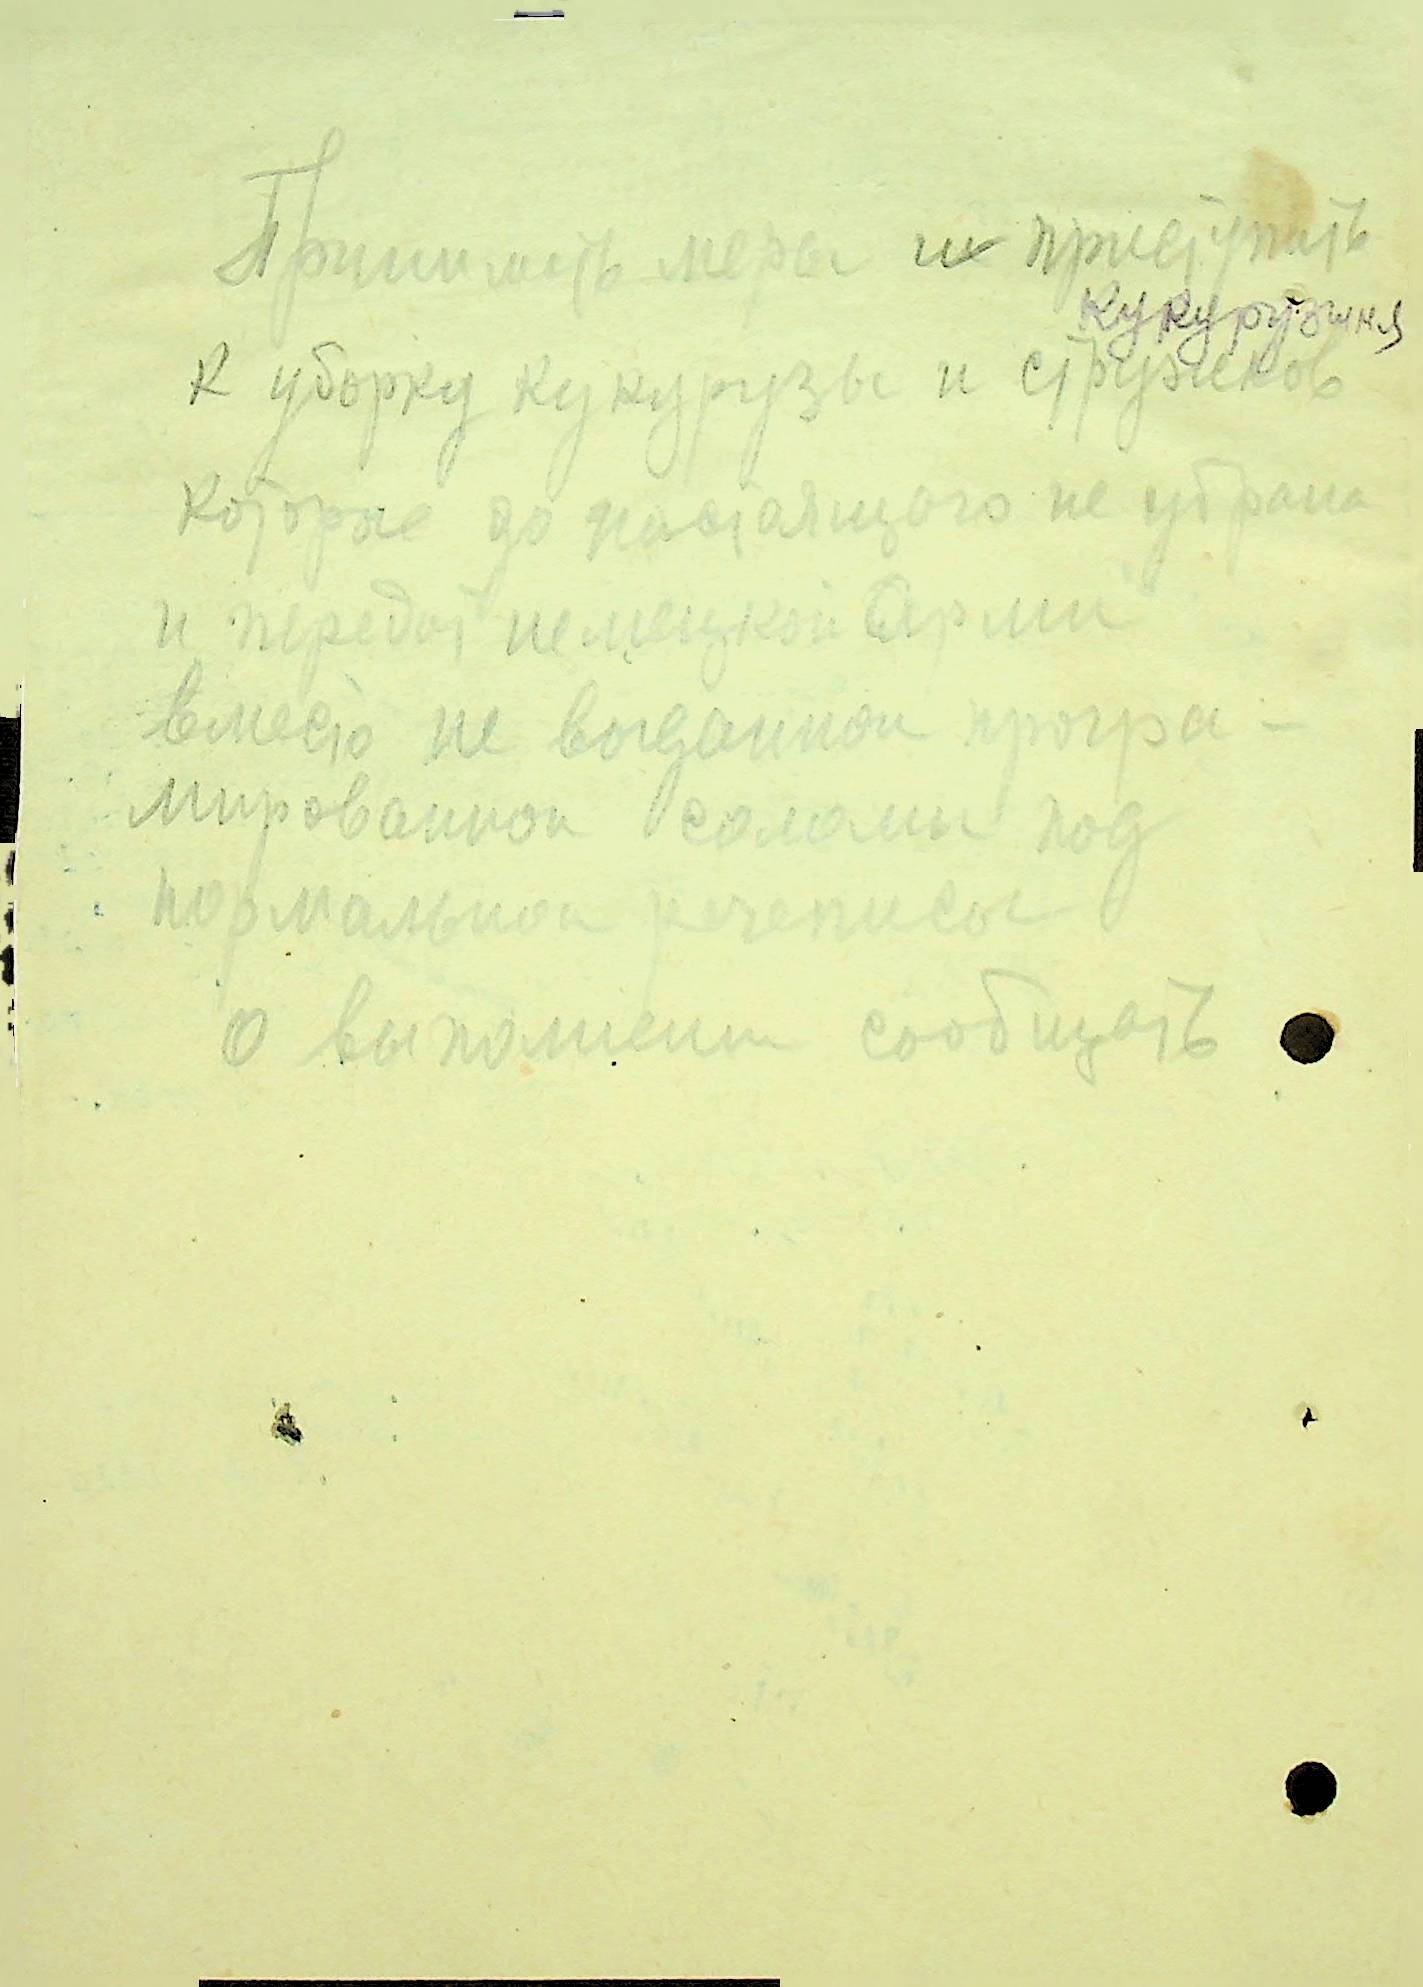 Принимать меры и приступать
кукурузиня
к уборку кукурузы и стружков
которое до настоящого не убрана
и передат немецкой Арми
вместо не выданной програ-
мированной соломы под
нормальной
О выполнении сообщать